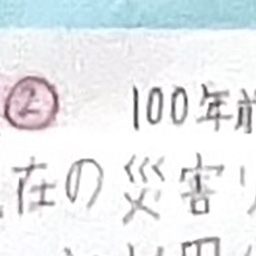 ② 100年前
在の災害